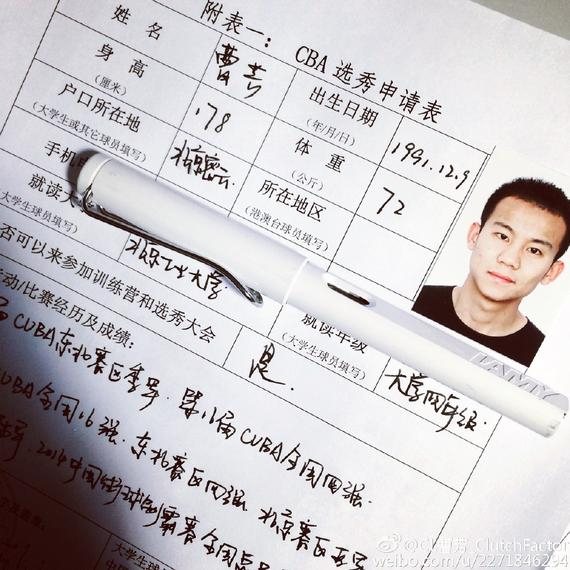 附表一： CBA 选秀申请表
姓 名 曹芳 出生日期 (年/月/日) 1991.12.9
身 高 (厘米) 178 体 重 (公斤) 72
户口所在地 (大学生或其它球员填写) 北京密云 所在地区 (港澳台球员填写)
手机
就读大 大学生球员填写) 北京工业大学 就读年级 (大学生球员填写) 大学四年级
否可以来参加训练营和选秀大会 是.
动/比赛经历及成绩：
CUBA东北赛区季军. 第16届CUBA全国四强.
CUBA全国16强. 东北赛区四强. 北京赛区亚军
2014中国街球争霸赛全国总
LAMY
大学生
_ClutchFactor
weibo.com/u/2271846294